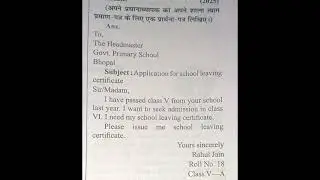 (अपने प्रधानाध्यापक को अपने शाला त्याग (2025)
प्रमाण-पत्र के लिए एक प्रार्थना-पत्र लिखिए।)
Ans.
To,
The Headmaster
Govt. Primary School
Bhopal
Subject: Application for school leaving
certificate
Sir/Madam,
I have passed class V from your school
last year. I want to seek admission in class
VI. I need my school leaving certificate.
Please issue me school leaving
certificate.
Yours sincerely
Rahul Jain
Roll No. 18
Class V—A